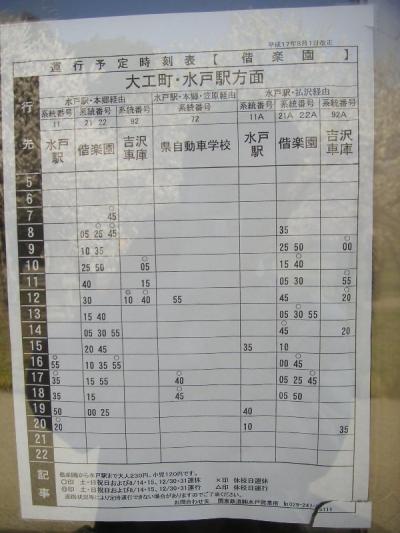 平成17年8月1日改正
運行予定時刻表【偕楽園】
大工町・水戸駅方面
行先
水戸駅・本郷経由 水戸駅・本郷・笠原経由 水戸駅・払沢経由
系統番号 系統番号 系統番号 系統番号 系統番号 系統番号 系統番号
11 21 22 92 72 11A 21A 22A 92A
水戸駅 偕楽園 吉沢車庫 県自動車学校 水戸駅 偕楽園 吉沢車庫
5
6
7 45
8 05 25 45 35
9 10 35 25 50 00
10 25 50 05 15 40
11 40 15 05 30 55
12 30 10 40 55 45 20
13 15 40 05 30 55
14 05 30 55 45 20
15 20 45 35 10
16 55 10 35 55 00 45
17 35 15 55 40 05 25 45
18 35 45 05 50
19 50 00 25 40
20 20 10 35
21
22
記事
偕楽園から水戸駅まで大人230円、小児120円です。
○印 土・日祝日および8/14・15、12/30・31運休 ×印 休校日運休
◎印 土・日祝日および8/14・15、12/30・31運行 △印 休校日運行
道路状況等により定時運行できない場合がありますのでご了承ください。
お問合わせ先 関東鉄道㈱水戸営業所